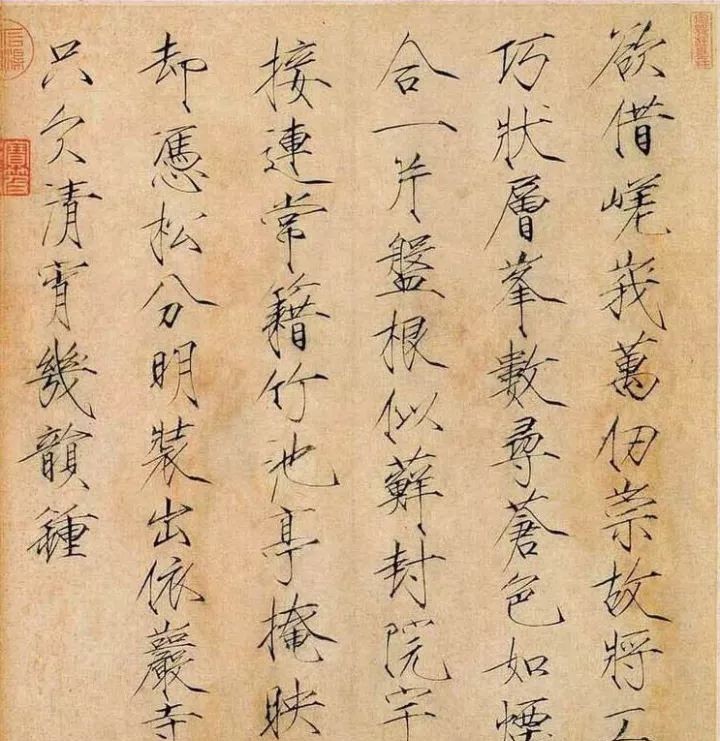 欲借嵯峩萬仞崇故將工
巧狀層峯數尋蒼色如煙
合一片盤根似蘚封院宇
接連常籍竹池亭掩映
却憑松分明裝出依巖寺
只欠清宵幾韻鍾